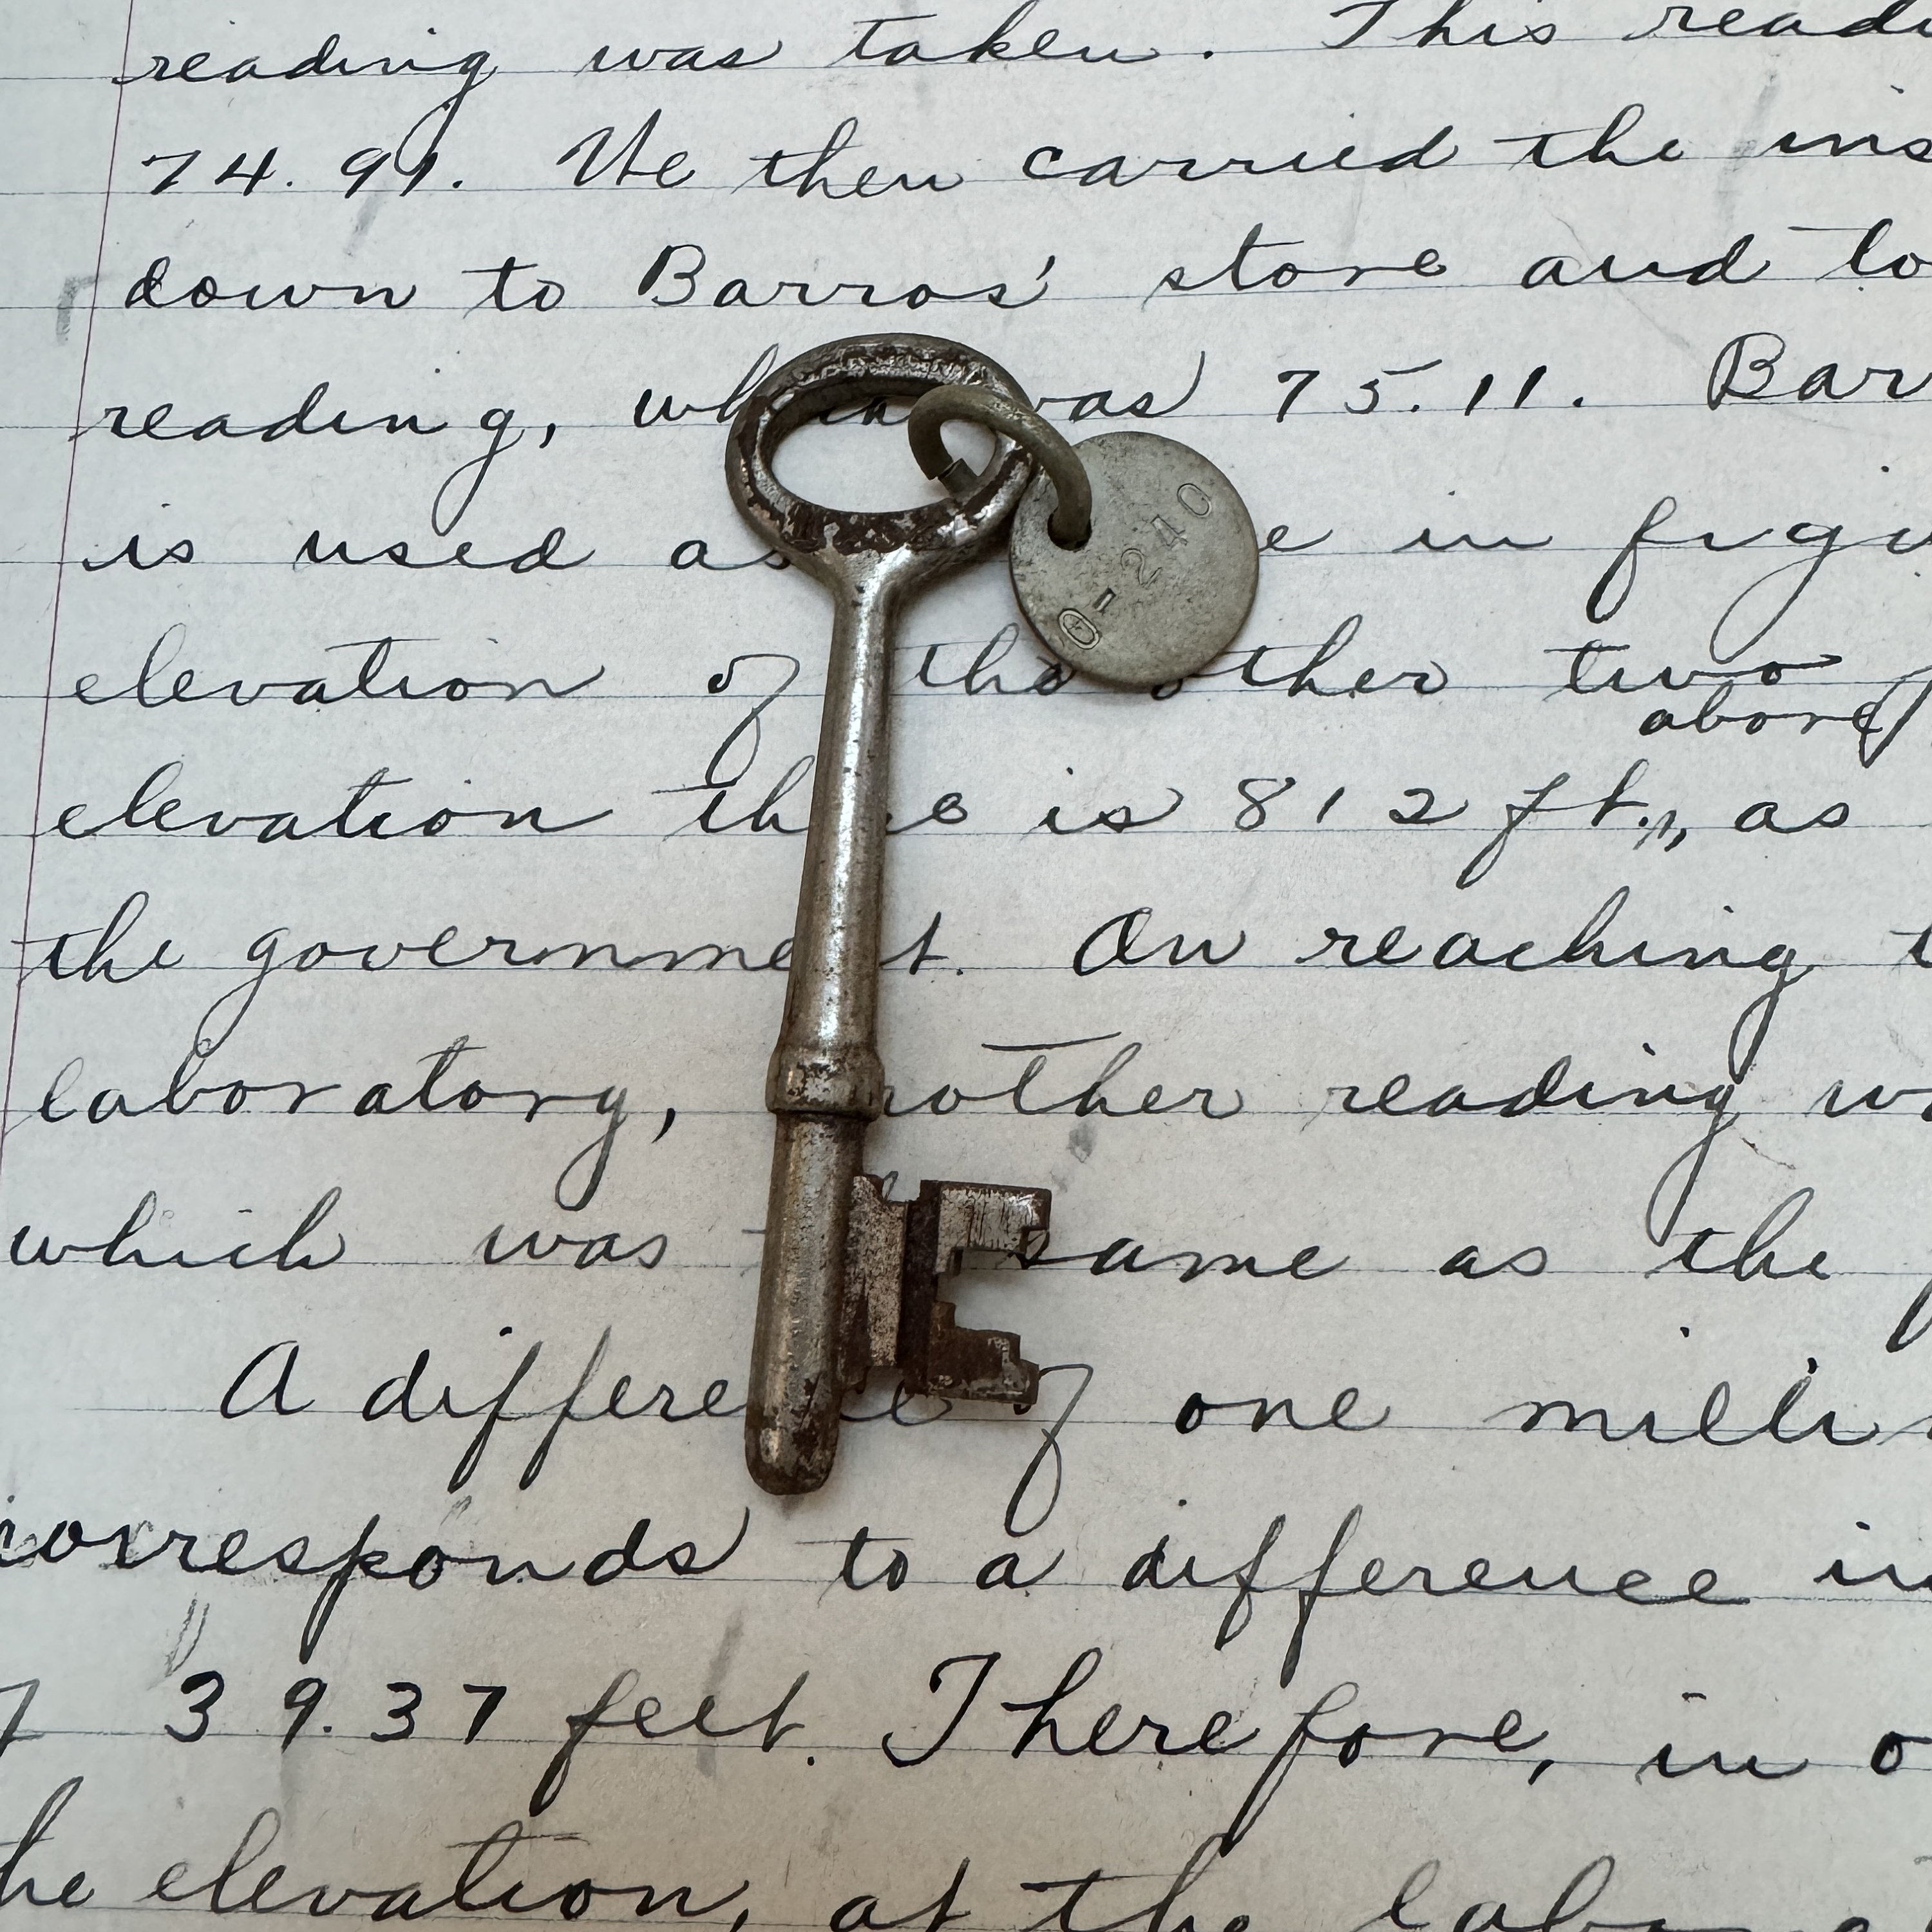 reading was taken. This readi
74.91. We then carried the ins
down to Barros' store and to
reading, which was 75.11. Bar
0-240
is used as e in figu
elevation of the other two
above
elevation there is 812 ft., as
the government. On reaching t
laboratory, another reading wa
which was the same as the
A difference of one millim
corresponds to a difference in
of 39.37 feet. Therefore, in o
the elevation, at the labo